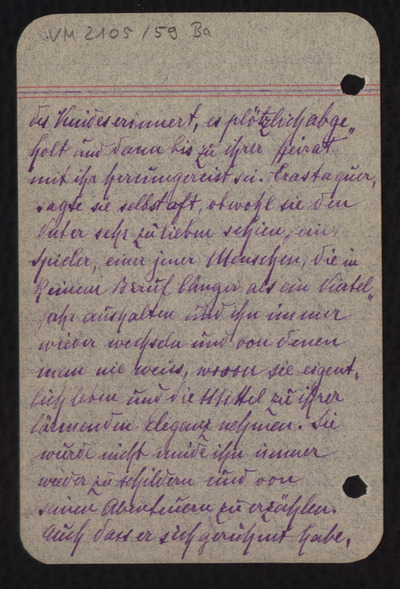 VM 2105/59 Ba
des Kindes erinnert, es plötzlich abge„
holt und dann bis zu ihrer Heirat
mit ihr herumgereist sei. Er
sagte sie selbst oft, obwohl sie den
Vater sehr zu lieben schien, ein
Spieler, einer jener Menschen, die in
keinem Beruf länger als ein Viertel„
jahr aushalten und ihn immer
wieder wechseln und von denen
man nie weiss, wovon sie eigent„
lich leben und die Mittel zu ihrer
lärmenden Eleganz nehmen. Sie
wurde nicht müde ihn immer
wieder zu schildern und von
seinen Abenteuern zu erzählen.
Auch dass er sich gerühmt habe,